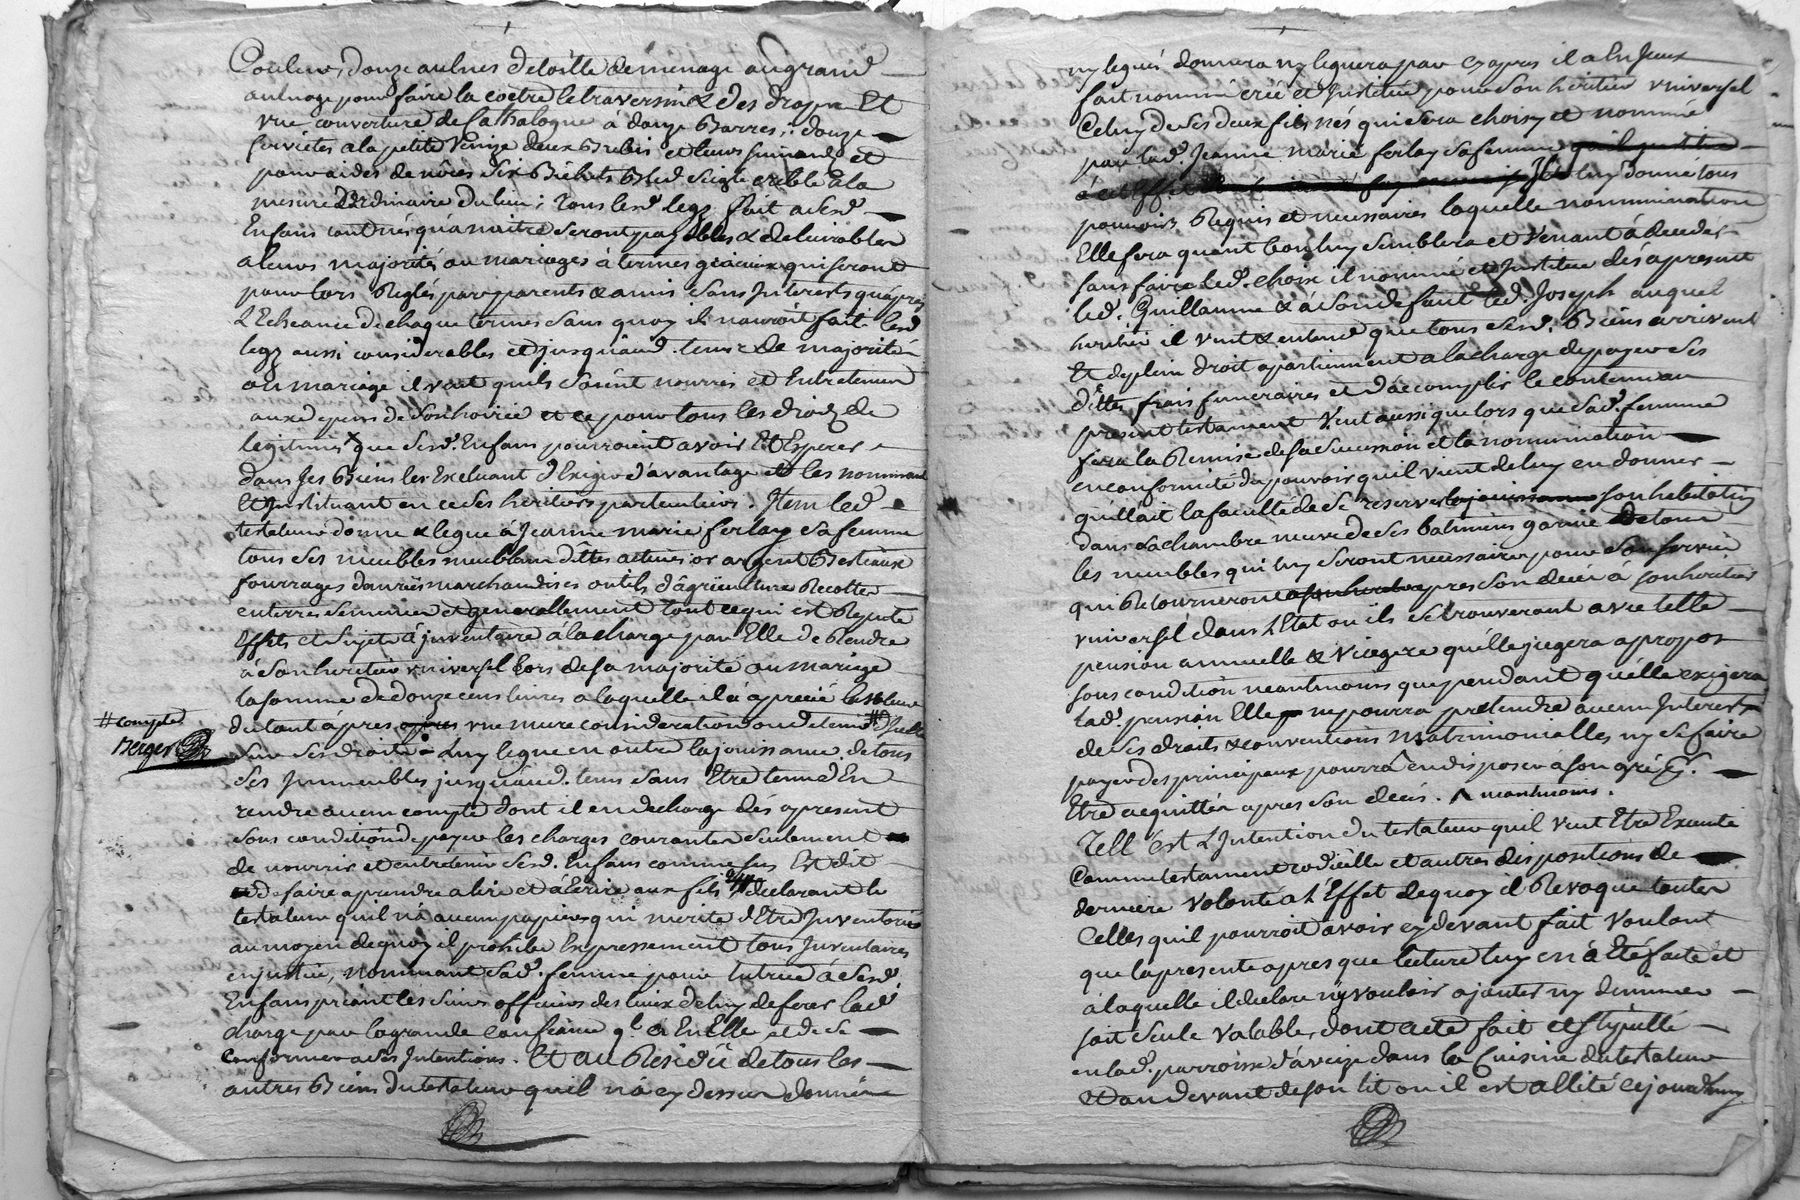 Couleur, douze aulnes de toille de menage au grand
aulnage pour faire la coetre le traversin & des draps Et
une couverture de Cathalogne à douze Barres, douze
serviettes a la petite Venize deux Brebis et leurs suivants et
pour aides de nôces six Bichets Bled seigle crible a la
mesure Ordinaire du lieu; tous lesd. legz fait a sesd.
Enfans tant nés qu'a naitre seront payables & delivrables
a leurs majorités ou mariages à termes gracieux qui seront
pour lors Reglés par parents & amis sans Interests qu'après
L'Echeance de chaque termes sans quoy il n'auroit fait lesd.
legz aussi considerables et jusqu'aud. tems de majorité
ou mariage il veut qu'ils soient nourris et Entretenus
aux depens de son hoirie et ce pour tous les droits de
legitimes que sesd. Enfans pourroient avoir Et Esperer
dans ses Biens les Excluant d'Exiger d'avantage et les nommant
Et Instituant en ce ses heritiers particuliers. Item led.
testateur donne & legue à Jeanne marie ferlay sa femme
tous ses meubles meublans dettes actives or argent Bestiaux
fourrages danrées marchandises outils d'agriculture Recoltes
enterres semences et generallement tout ce qui est Repute
Effets et sujets à inventaire à la charge par Elle de Rendre
à son heritier universel lors de sa majorité ou mariage
la somme de douze cens livres a laquelle il a aprecié la valeur
du tout apres une mure consideration ou de tenir # d'Icelle
sur ses droits. Luy legue en outre la jouissance de tous
# compte
Berger
ses Immeubles jusqu'aud. tems sans Etre tenue d'En
rendre aucun compte dont il en decharge dès apresent
sous condition de payer les charges courantes seulement
de nourrir et entretenir sesd. Enfans comme sus Est dit
de faire aprendre a lire et à Ecrire aux fils declarant le
testateur qu'il n'a aucun papiers qui merite d'Etre Inventorié
au moyen de quoy il prohibe Expressement tous Inventaires
en justice, nommant sad. femme pour tutrice à sesd.
Enfans priant les sieurs officiers des lieux de luy deferer lad.
charge par la grande confiance ql. a En Elle et de se
conformer a ses Intentions. Et au Residu de tous les
autres Biens du testateur qu'il n'a cy dessus donné ne
ny legués donnera ny leguera par cy apres il a lui seul
fait nommé créé et Institué pour son heritier universel
Celuy de ses deux fils nés qui sera choisy et nommé
par lad. Jeanne Marie ferlay sa femme
luy donne tous
pouvoirs Requis et necessaires laquelle nommination
Elle fera quant bon luy semblera et venant à deceder
sans faire led. choix il nomme et Institue dès apresent
led. Guillaume & à son defaut led. Joseph auquel
heritier il veut & entend que tous sesd. Biens arrivent
Et de plein droit apartiennent a la charge de payer ses
dettes frais funeraires et d'accomplir le contenu au
present testament Veut aussi que lors que sad. femme
fera la Remise de sa succession et la nommination
en conformité du pouvoir qu'il vient de luy en donner
qu'Elle ait la faculté de se reserver son habitation
dans la chambre neuve de ses batimens garnie de tous
les meubles qui luy seront necessaires pour son service
qui Retourneront apres son decès à son heritier
universel dans L'Etat ou ils se trouveront avec telle
pension annuelle & Viagere qu'elle jugera apropos
sous condition neantmoins que pendant qu'elle exigera
lad. pension Elle ne pourra pretendre aucun Interests
de ses droits & conventions matrimonialles ny se faire
payer des principaux pourra en disposer a son gré &
Etre acquittés apres son decès. ^ neantmoins.
Tell est L'Intention du testateur qu'il veut Etre Executé
Comme testament codicille et autres dispositions de
derniere Volonté a L'Effet de quoy il Revoque toutes
Celles qu'il pourroit avoir cy devant fait Voulant
que la presente apres que lecture luy en a Eté faite et
à laquelle il declare n'y vouloir ajouter ny diminuer
soit seule Valable, dont acte fait et stipullé
en lad. parroisse d'aveize dans la Cuisine du testateur
et au devant de son lit ou il est allité cejourd'huy